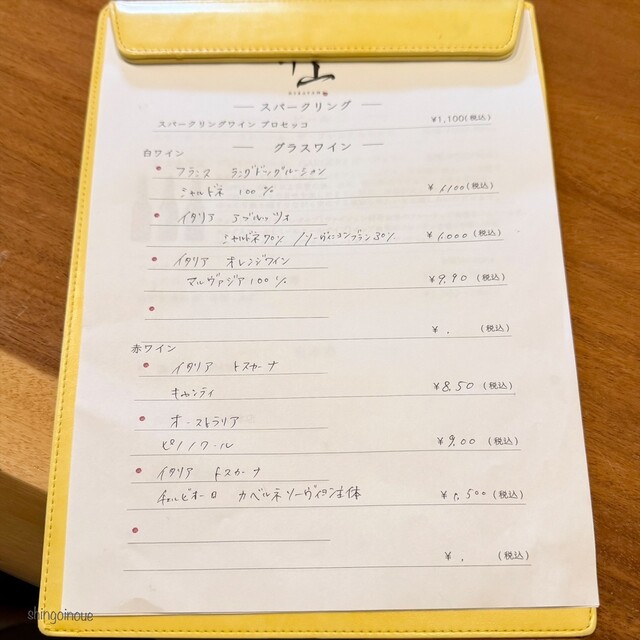 スパークリング
スパークリングワイン プロセッコ ¥1,100(税込)
グラスワイン
白ワイン
フランス ラングドックルーション
シャルドネ 100% ¥ 1,100(税込)
イタリア アブルッツォ
シャルドネ70% / ソーヴィニヨンブラン30% ¥ 1.000 (税込)
イタリア オレンジワイン
マルヴァジア100% ¥ 9.90 (税込)
¥ . (税込)
赤ワイン
イタリア トスカーナ
キャンティ ¥ 8.50 (税込)
オーストラリア
ピノノワール ¥ 9.00 (税込)
イタリア トスカーナ
カベルネソーヴィヨン主体 ¥ 1.500 (税込)
¥ . (税込)
shingoinoue